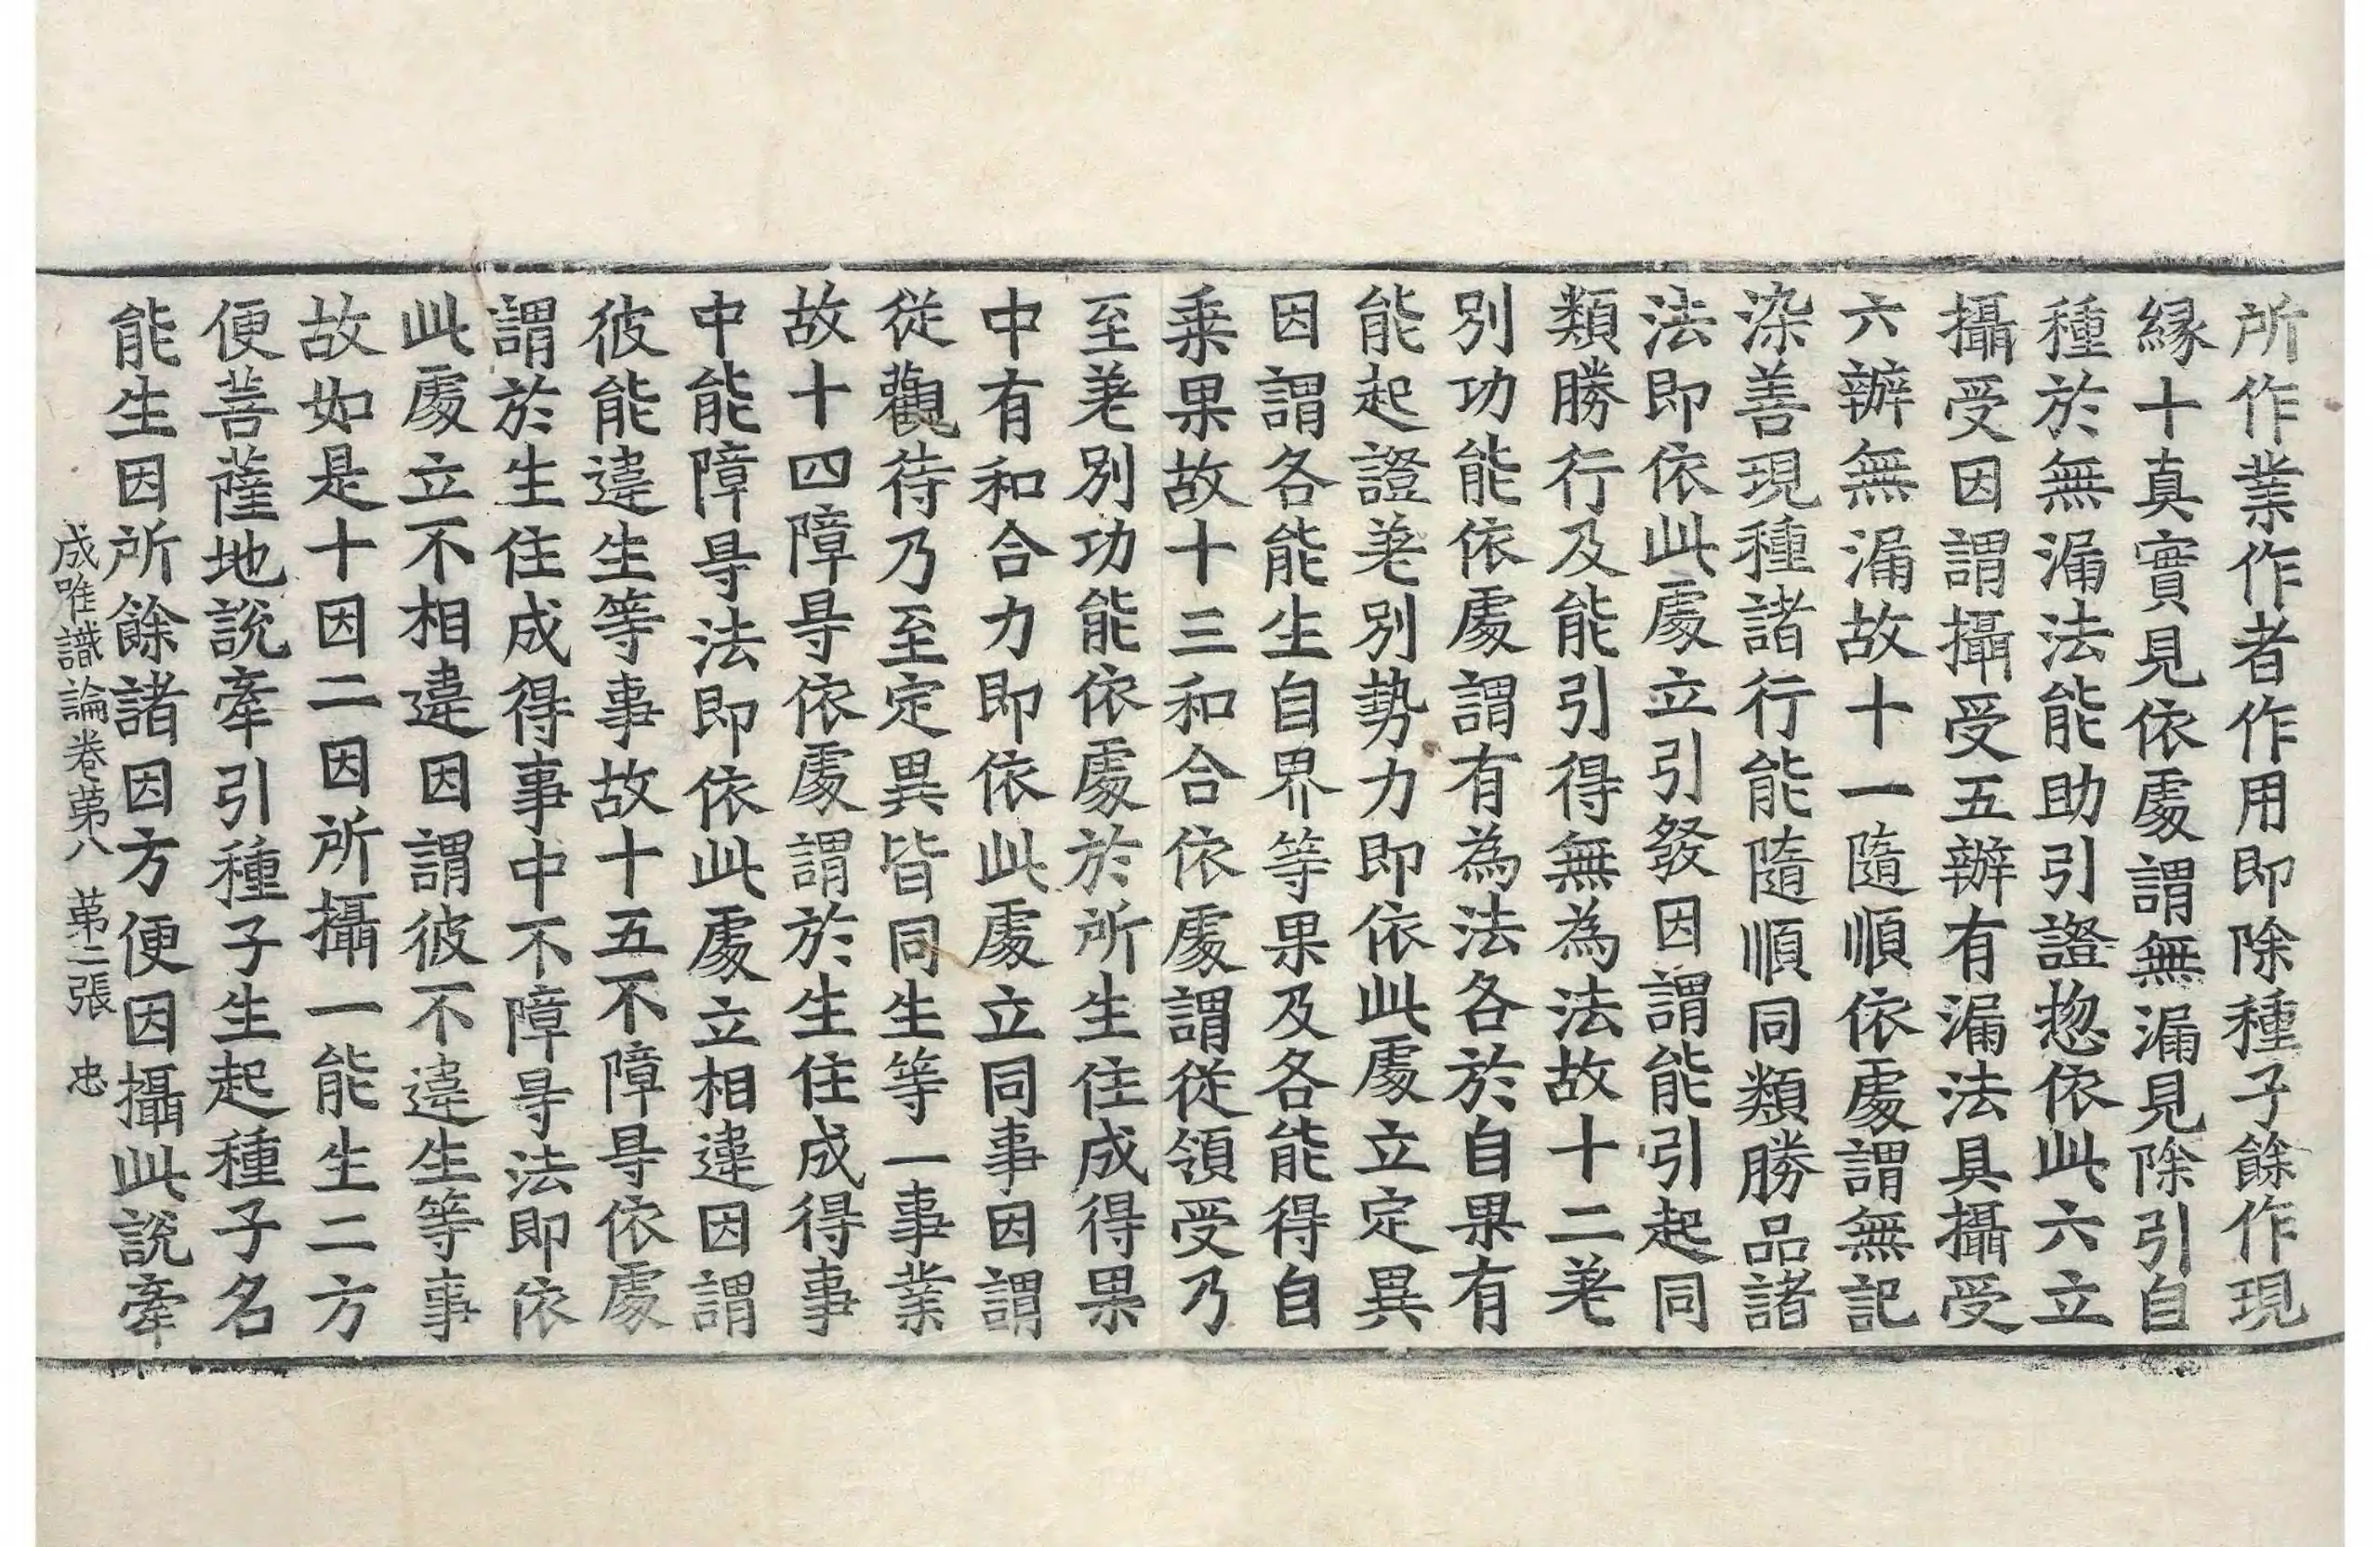 所作業作者作用即除種子餘作現
緣十真實見依處謂無漏見除引自
種於無漏法能助引證揔依此六立
攝受因謂攝受五辦有漏法具攝受
六辦無漏故十一隨順依處謂無記
染善現種諸行能隨順同類勝品諸
法即依此處立引發因謂能引起同
類勝行及能引得無為法故十二差
別功能依處謂有為法各於自果有
能起證差別勢力即依此處立定異
因謂各能生自界等果及各能得自
乗果故十三和合依處謂從領受乃
至差別功能依處於所生住成得果
中有和合力即依此處立同事因謂
從觀待乃至定異皆同生等一事業
故十四障㝵依處謂於生住成得事
中能障㝵法即依此處立相違因謂
彼能違生等事故十五不障㝵依處
謂於生住成得事中不障㝵法即依
此處立不相違因謂彼不違生等事
故如是十因二因所攝一能生二方
便菩薩地說牽引種子生起種子名
能生因所餘諸因方便因攝此說牽
成唯識論卷第八 第二張 忠